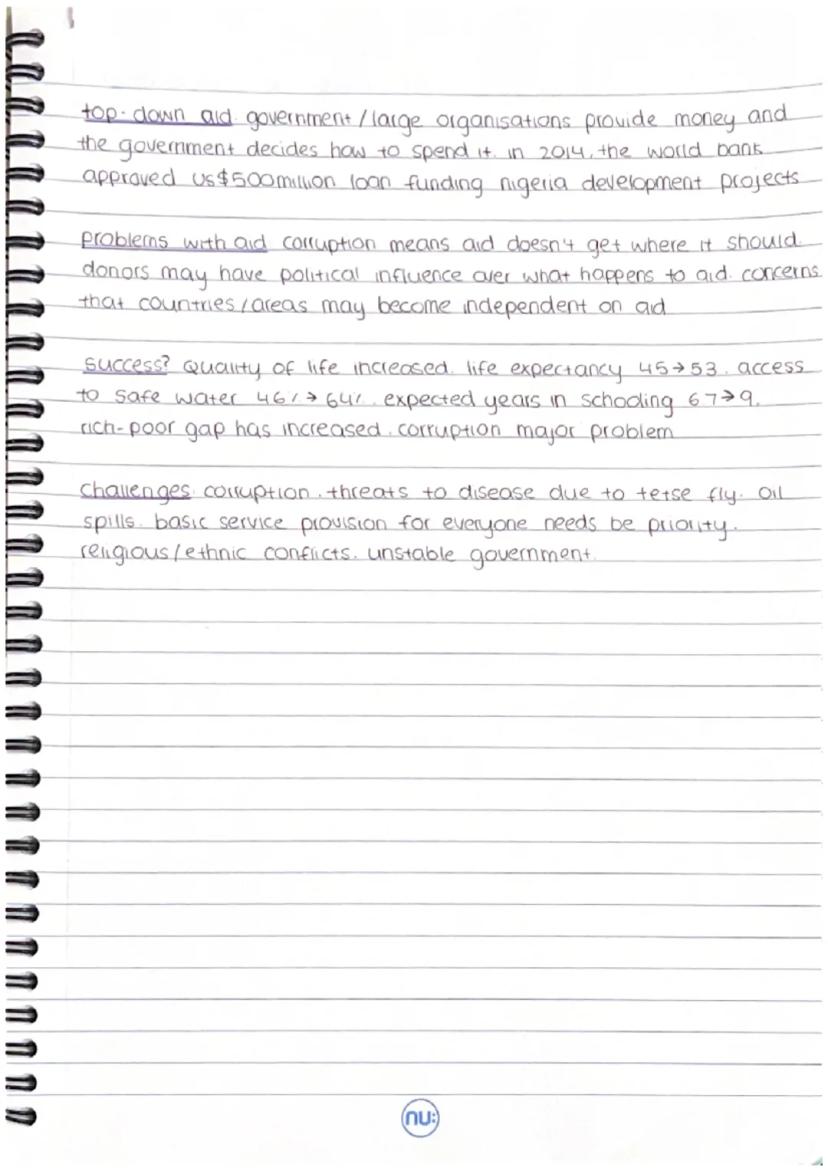 top-down aid government/large organisations provide money and
the government decides how to spend it. in 2014, the world bank
approved US$500million loan funding nigeria development projects
problems with aid corruption means aid doesn't get where it should.
donors may have political influence over what happens to aid. concerns
that countries/areas may become independent on aid
success? quality of life increased. life expectancy 45→53. access
to safe water 46%→64%. expected years in schooling 67→9.
rich-poor gap has increased. corruption major problem
challenges corruption. threats to disease due to tetse fly. oil
spills. basic service provision for everyone needs be priority.
religious/ethnic conflicts. unstable government.
nu: